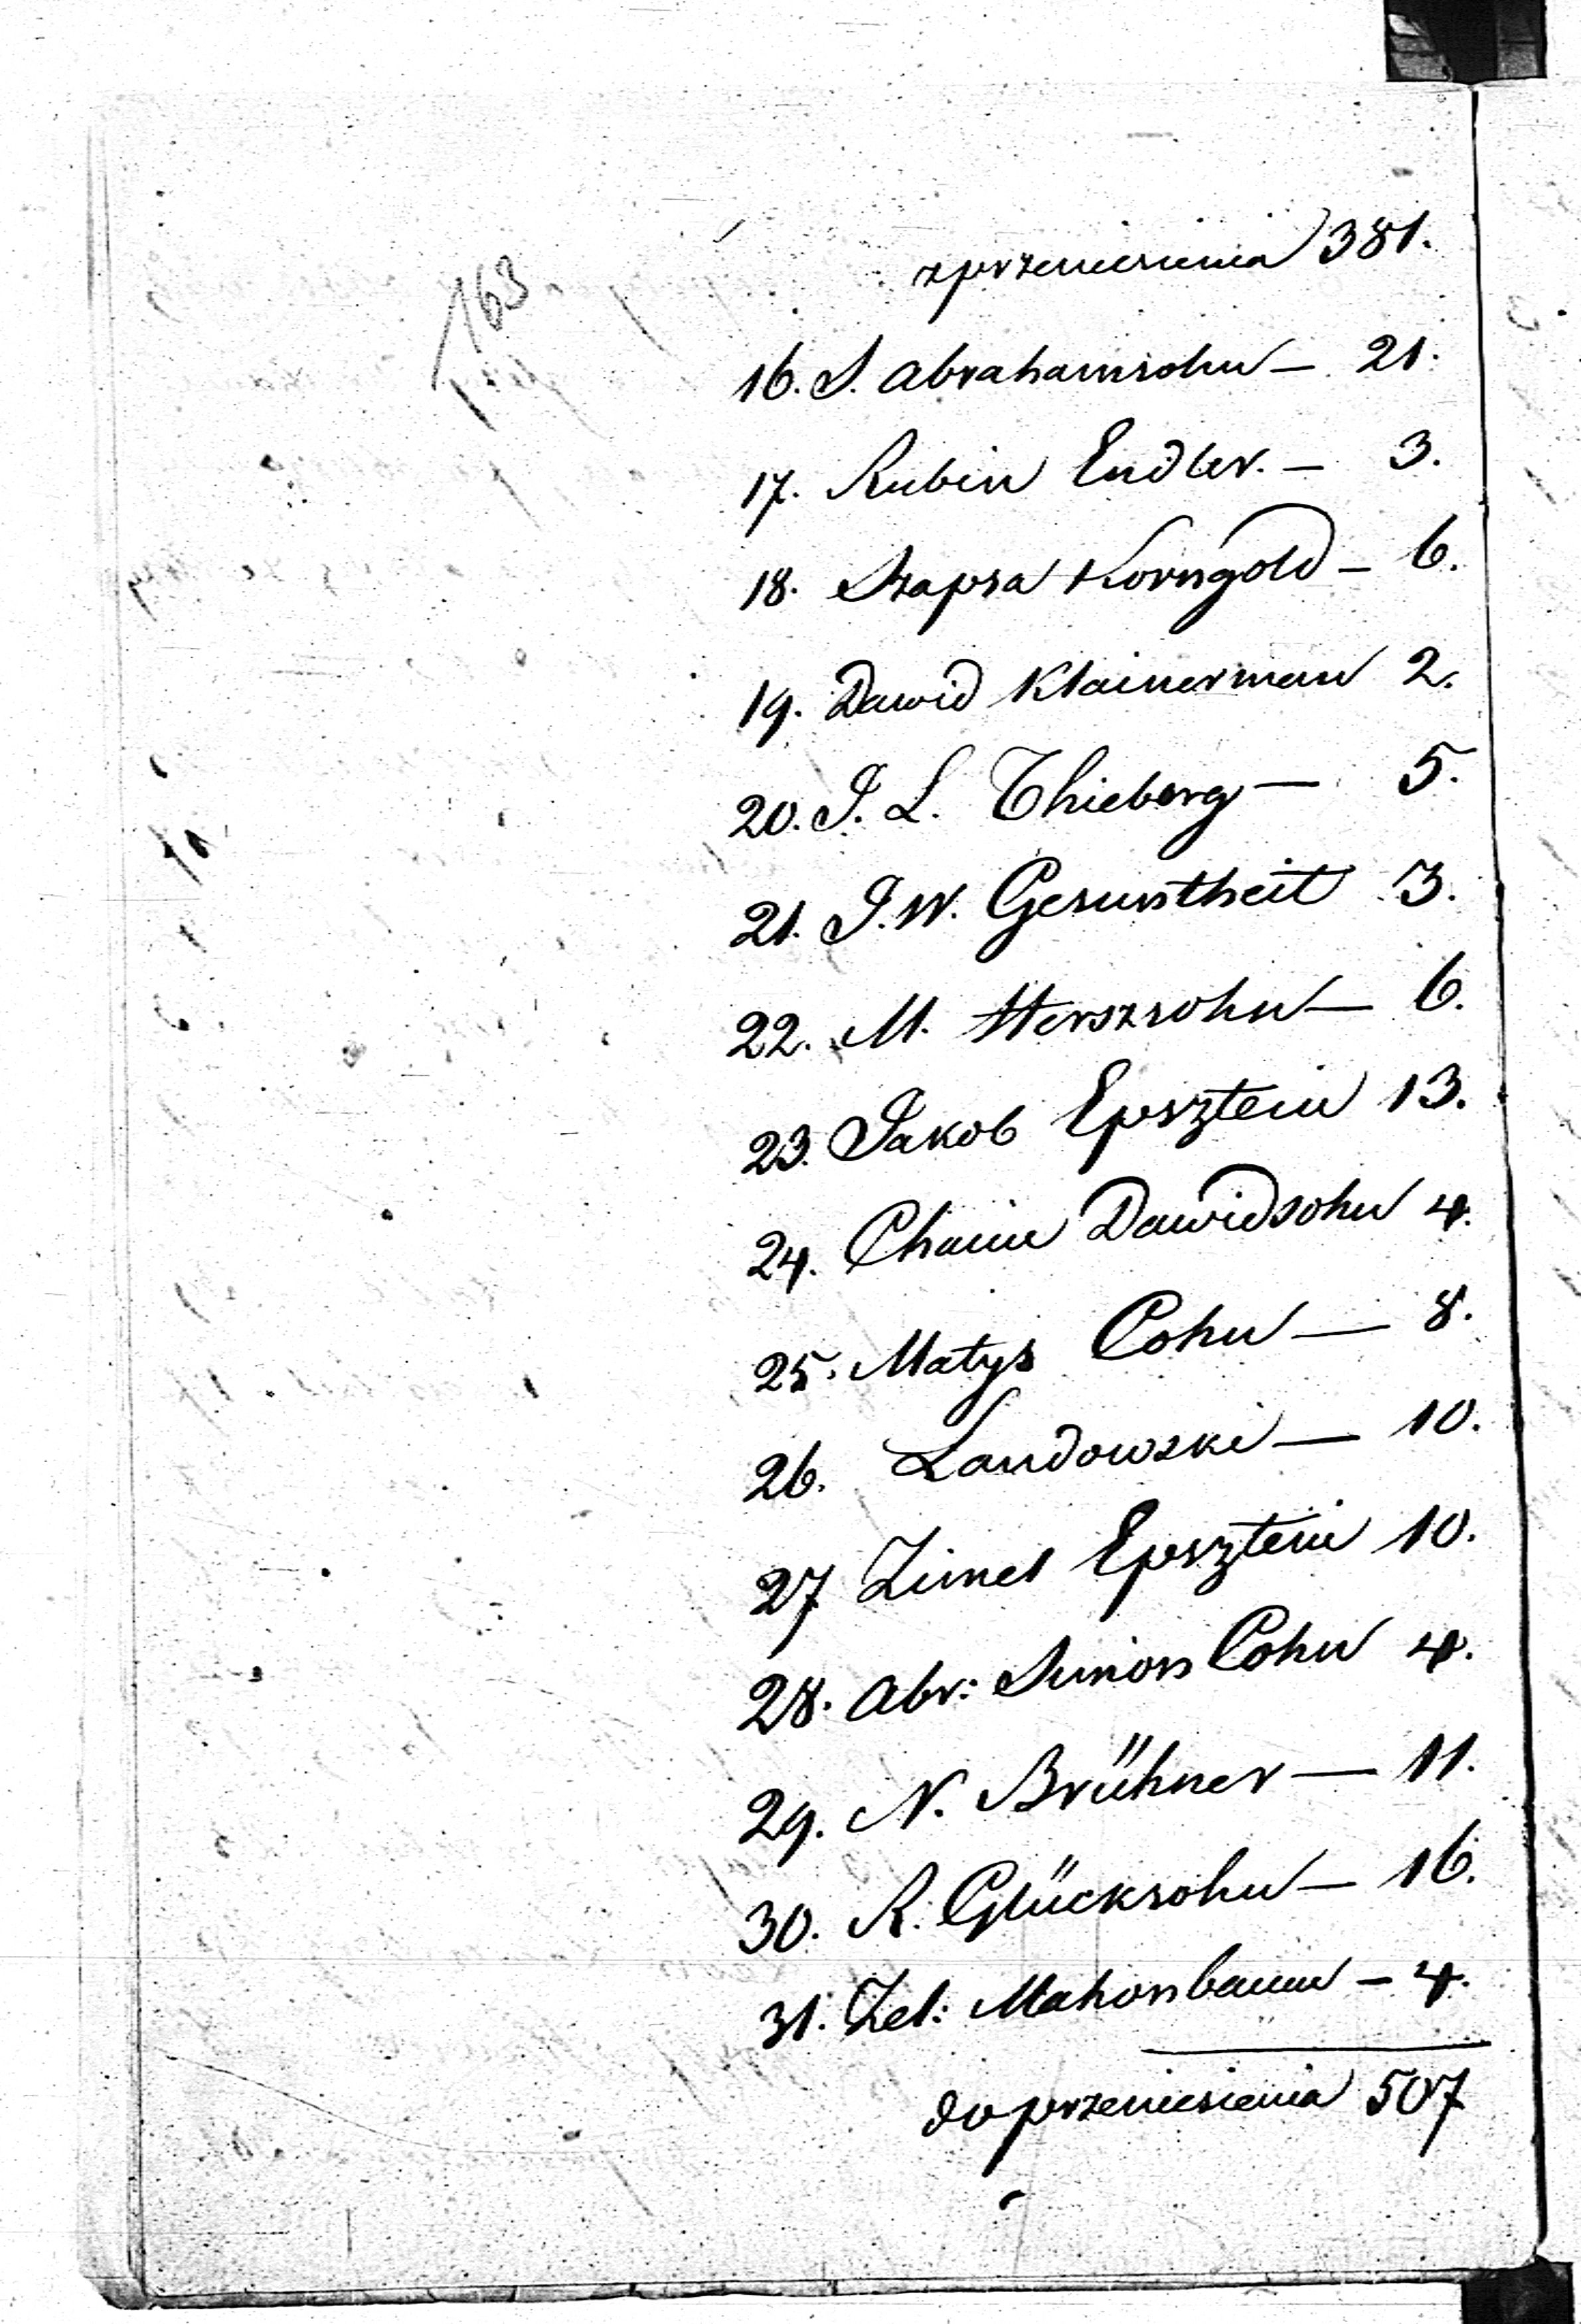 163
z przeniesienia 381.
16. S. Abrahamsohn — 21.
17. Rubin Endler. — 3.
18. Szapsa Korngold — 6.
19. Dawid Klainerman 2.
20. J. L. Thieberg — 5.
21. J. W. Gesuntheit 3.
22. M. Herszsohn — 6.
23. Jakob Epsztein 13.
24. Chaim Dawidsohn 4.
25. Matys Cohn — 8.
26. Landowski — 10.
27 Zimel Epsztein 10.
28. Abr: Simon Cohn 4.
29. N. Brühner — 11.
30. R. Glücksohn — 16.
31. Zel: Mahonbaum — 4.
do przeniesienia 507